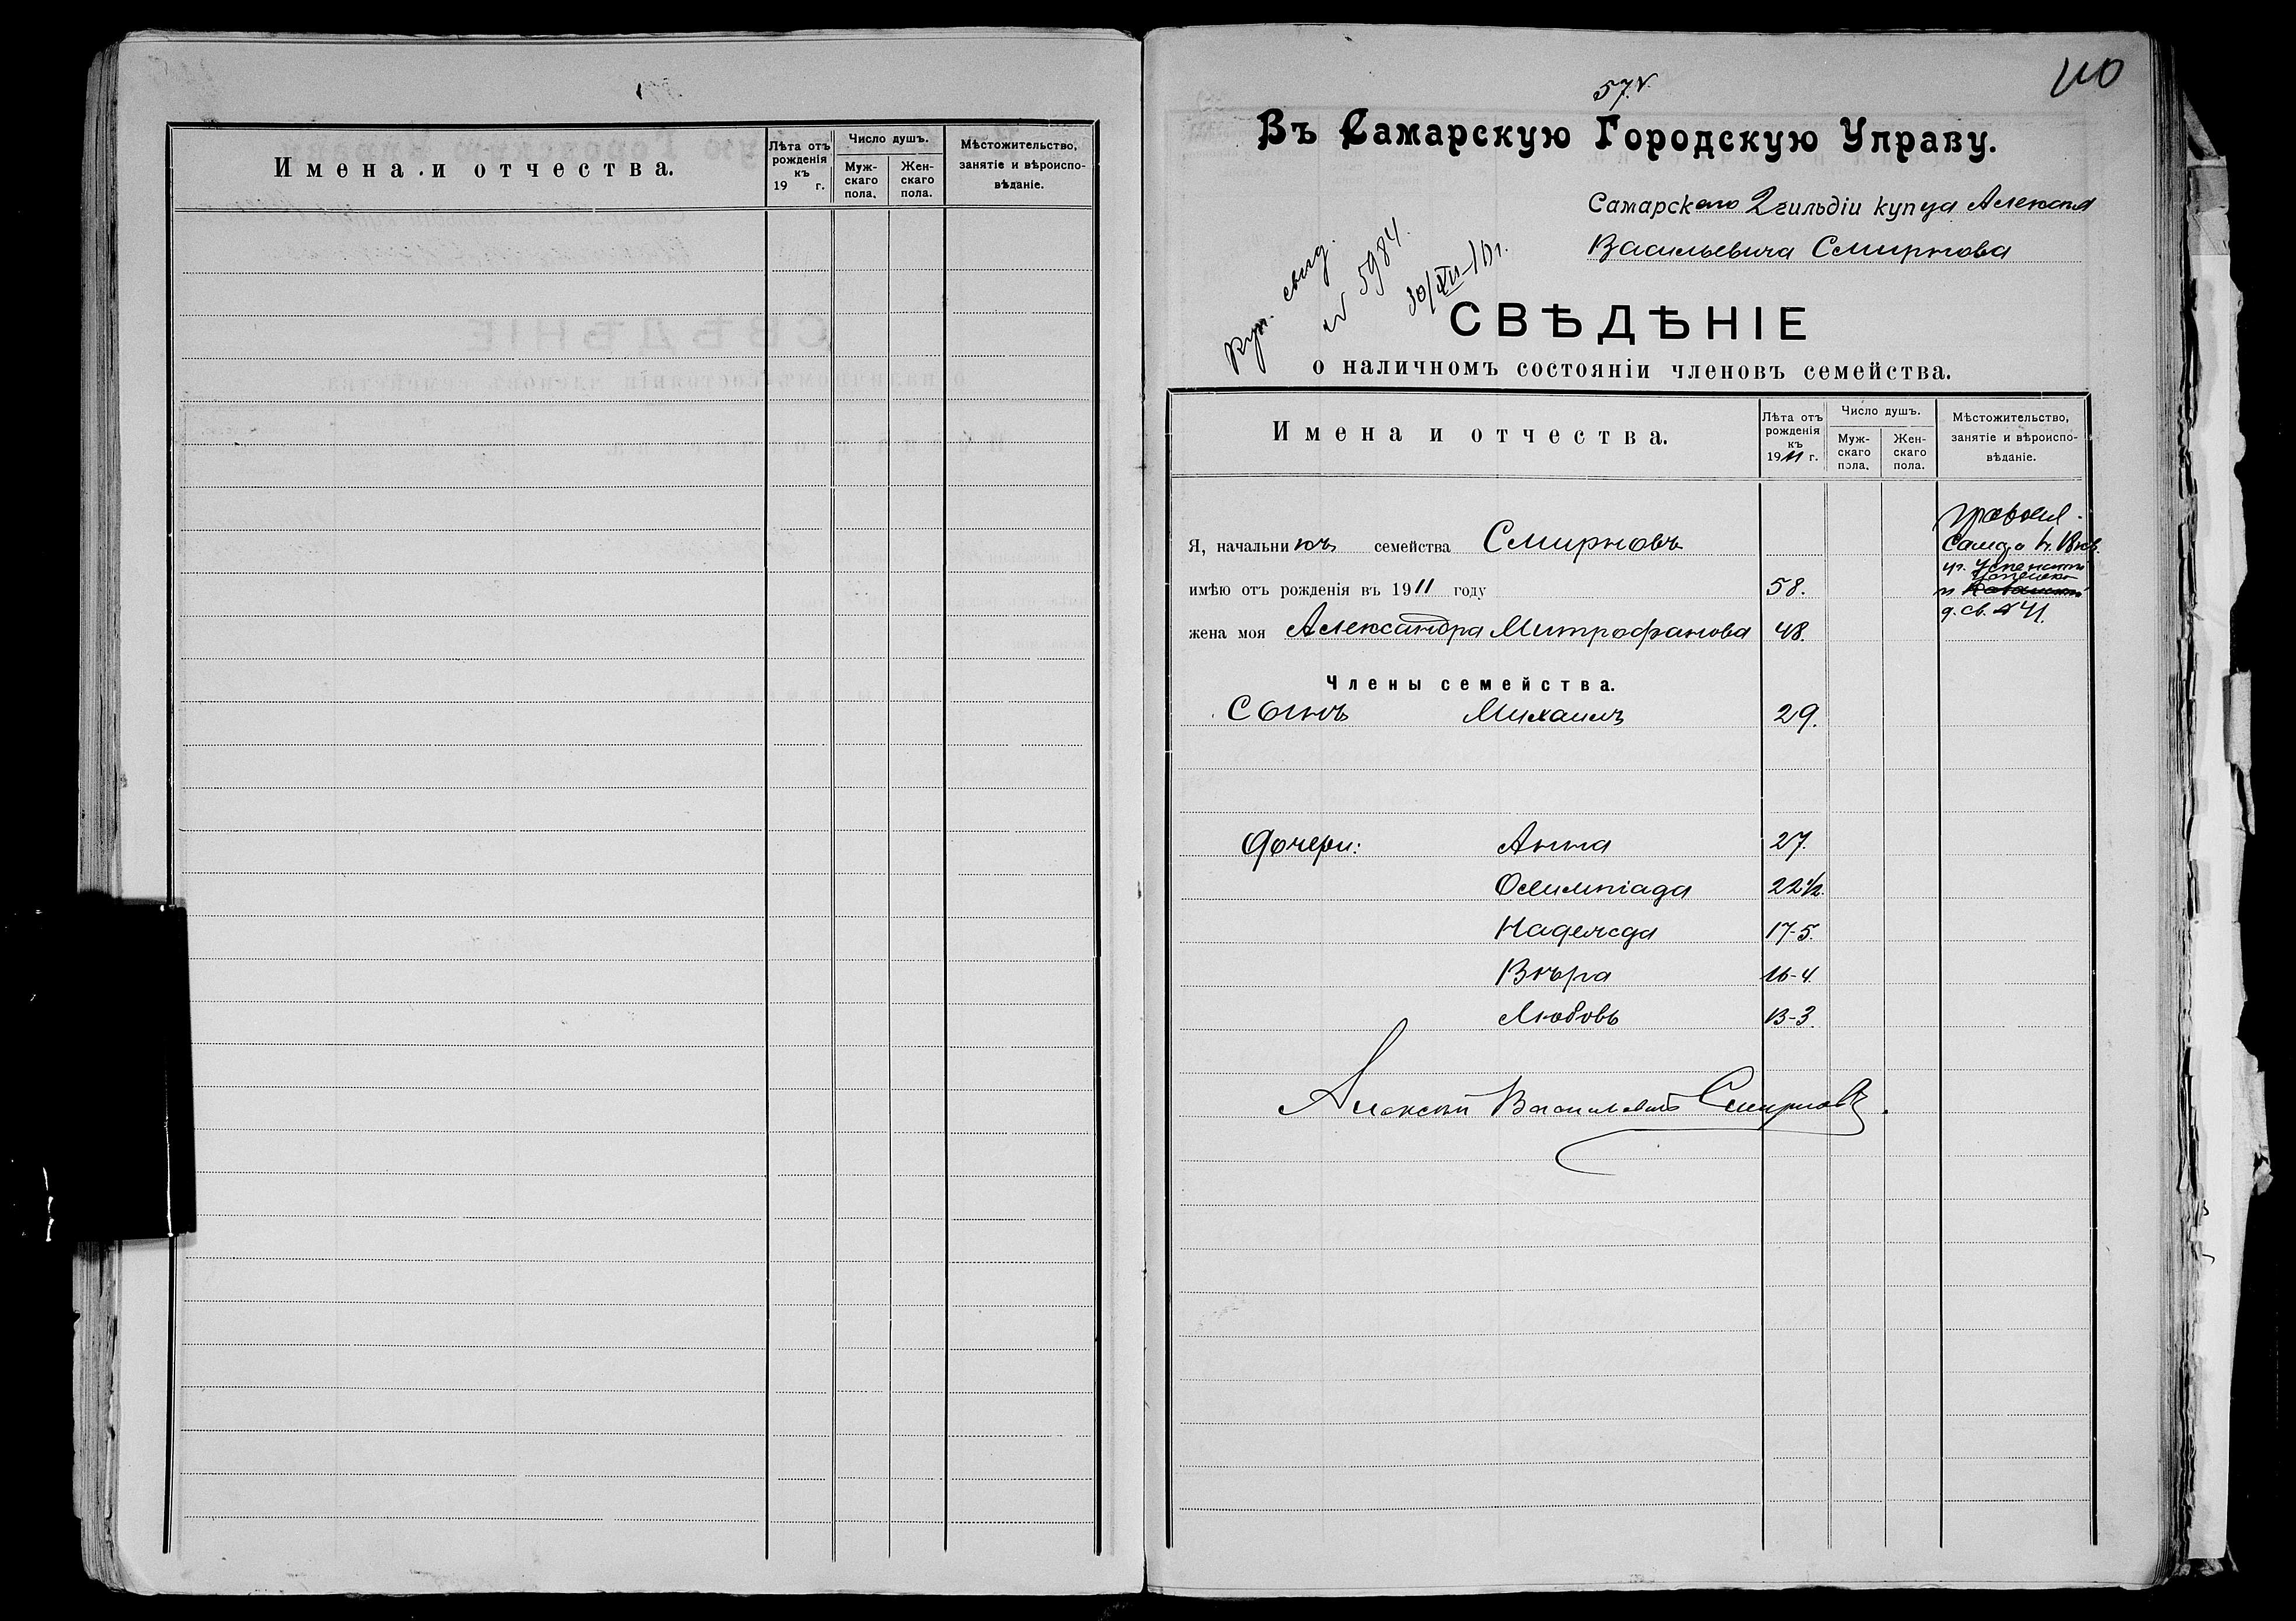 Имена и отчества.
Лѣта отъ рожденія къ 19 г.
Число душъ.
Мужскаго пола.
Женскаго пола.
Мѣстожительство, занятіе и вѣроисповѣданіе.
110
57.
Въ Самарскую Городскую Управу.
Самарскаго 2 гильдіи купца Алексѣя
Васильевича Смирнова
Куп. свид.
№ 5984.
30/XII-10 г.
СВѢДѢНІЕ
о наличномъ состояніи членовъ семейства.
Имена и отчества.
Лѣта отъ рожденія къ 1911 г.
Число душъ.
Мужскаго пола.
Женскаго пола.
Мѣстожительство, занятіе и вѣроисповѣданіе.
Я, начальникъ семейства Смирновъ
имѣю отъ рожденія въ 1911 году 58.
жена моя Александра Митрофанова 48.
д. св. № 41.
Члены семейства.
Сынъ Михаилъ 29.
Дочери: Анна 27.
Олимпіада 22 1/2.
Надежда 17-5.
Вѣра 16-4.
Любовь 13-3.
Алексѣй Васильевичъ Смирновъ.